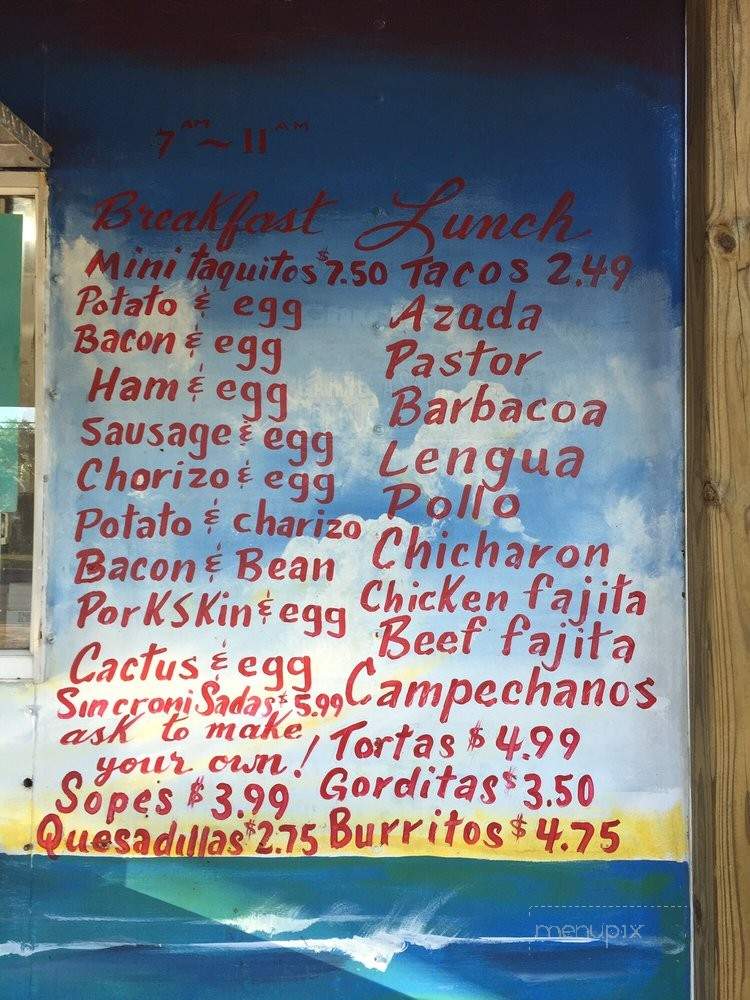 7 AM ~ 11 AM
Breakfast
Mini taquitos $7.50
Potato & egg
Bacon & egg
Ham & egg
Sausage & egg
Chorizo & egg
Potato & charizo
Bacon & Bean
PorKSKin & egg
Cactus & egg
SincroniSadas $5.99
ask to make
your own!
Sopes $3.99
Quesadillas $2.75
Lunch
Tacos 2.49
Azada
Pastor
Barbacoa
Lengua
Pollo
Chicharon
Chicken fajita
Beef fajita
Campechanos
Tortas $4.99
Gorditas $3.50
Burritos $4.75
menupix